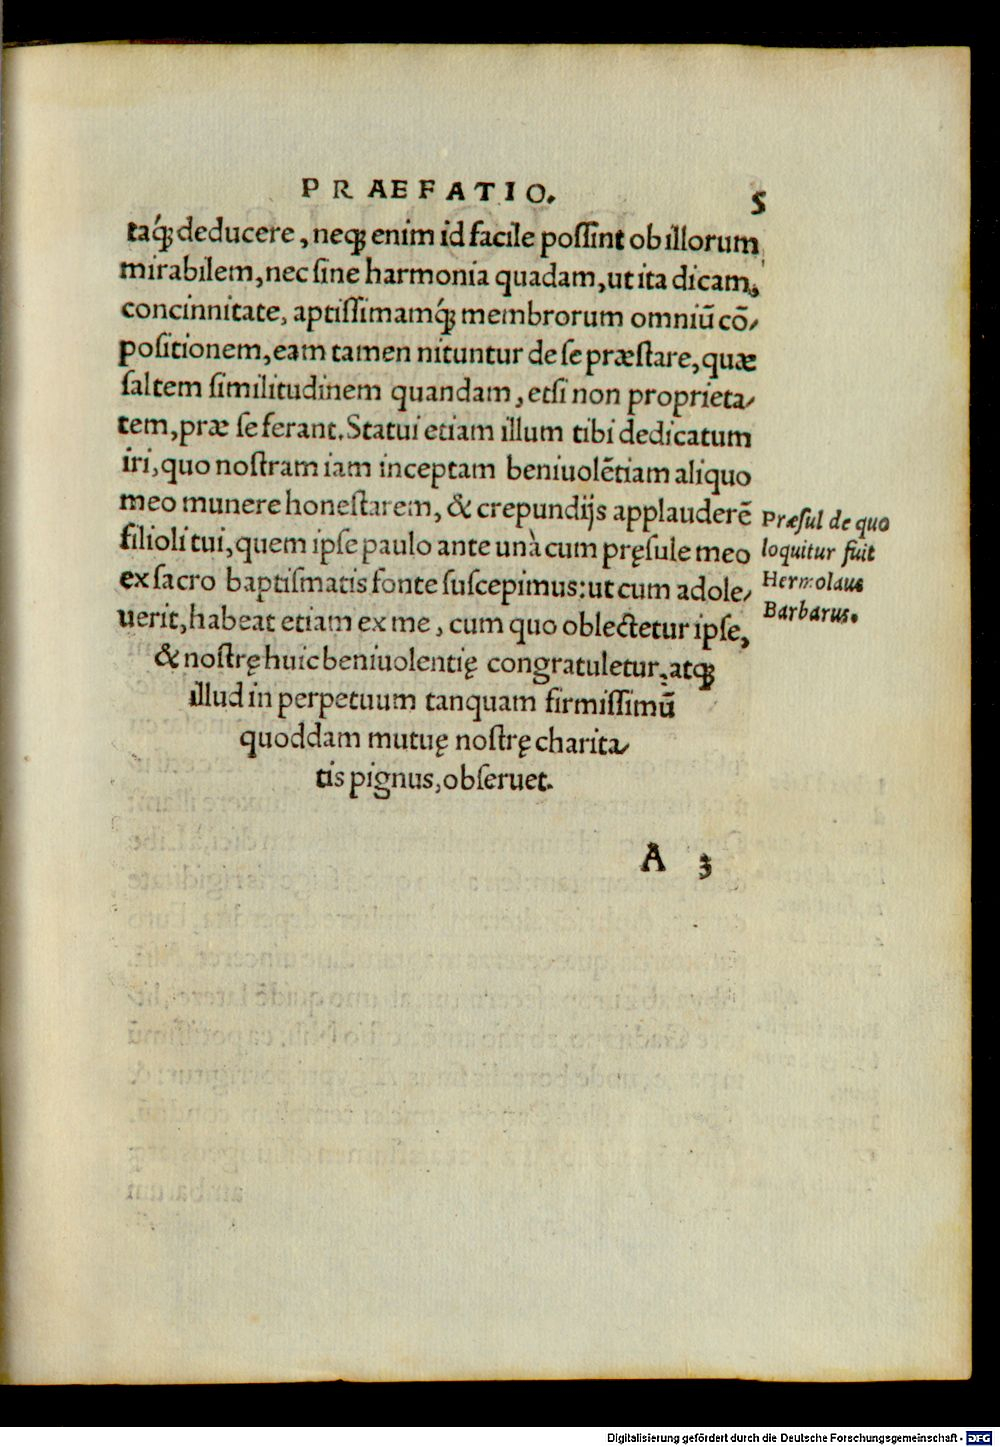 PRAEFATIO. 5
taq́ꝫ deducere, neqꝫ enim id facile poſſint ob illorum
mirabilem, nec ſine harmonia quadam, ut ita dicam,
concinnitate, aptiſſimamq́ꝫ membrorum omniū cō-
poſitionem, eam tamen nituntur de ſe præſtare, quæ
ſaltem ſimilitudinem quandam, etſi non proprieta-
tem, præ ſe ferant. Statui etiam illum tibi dedicatum
iri, quo noſtram iam inceptam beniuolētiam aliquo
meo munere honeſtarem, & crepundijs applauderē
filioli tui, quem ipſe paulo ante unà cum pręſule meo
ex ſacro baptiſmatis fonte ſuſcepimus: ut cum adole-
uerit, habeat etiam ex me, cum quo oblectetur ipſe,
& noſtrę huic beniuolentię congratuletur, atqꝫ
illud in perpetuum tanquam firmiſſimū
quoddam mutuę noſtrę charita-
tis pignus, obſeruet.
Præſul de quo
loquitur fuit
Hermolaus
Barbarus.
A 3
Digitalisierung gefördert durch die Deutsche Forschungsgemeinschaft - DFG